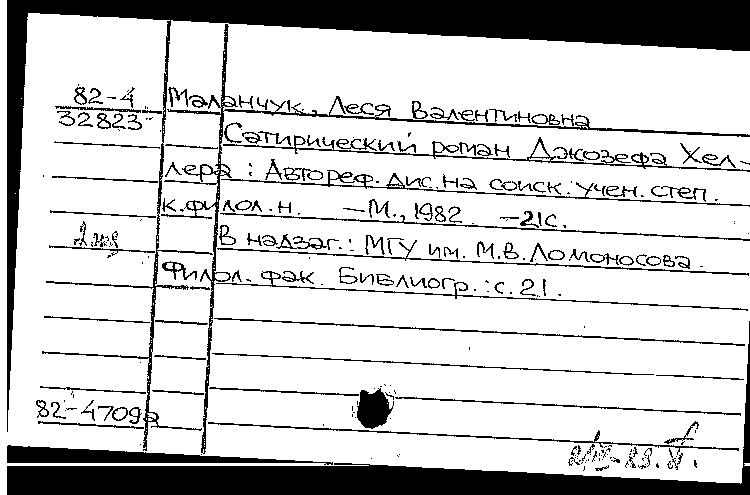 82-4 Маланчук, Леся Валентиновна
32823
Сатирический роман Джозефа Хел-
лера : Автореф. дис. на соиск. учен. степ.
к. филол. н. — М., 1982. — 21с.
2 экз
В надзаг.: МГУ им. М.В. Ломоносова.
Филол. фак. Библиогр.: с. 21.
82-4709а